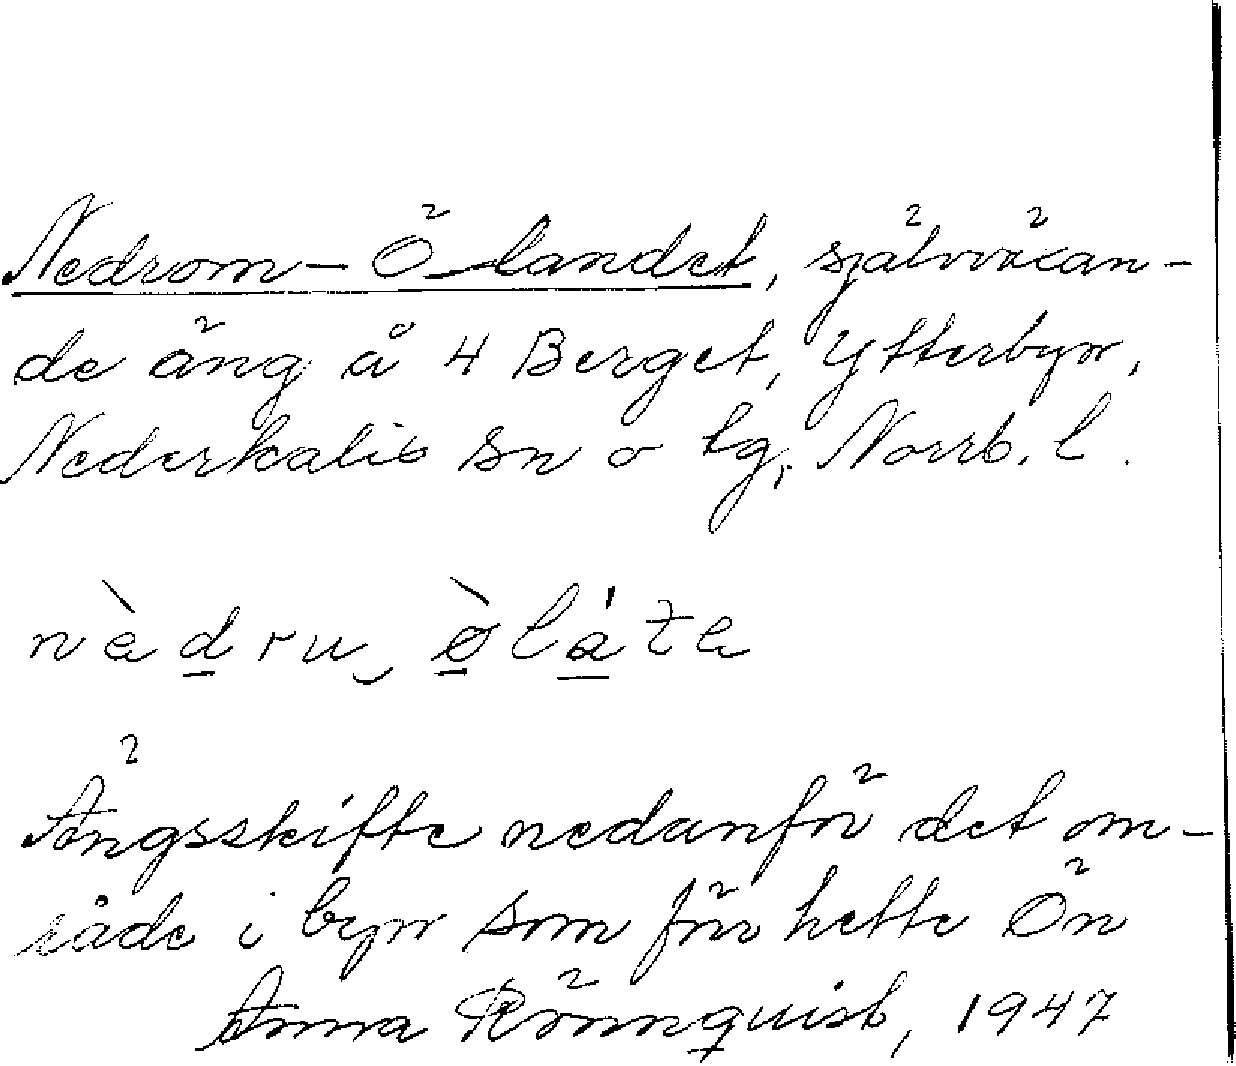 Nedrom-Ölandet, självväxan-
de äng å 4 Berget, Ytterbyn,
Nederkalix sn o tg, Norrb. l.
nèdru, ø̀láta
Ängsskifte nedanför det om-
råde i byn som förr hette Ön
Anna Rönnquist, 1947